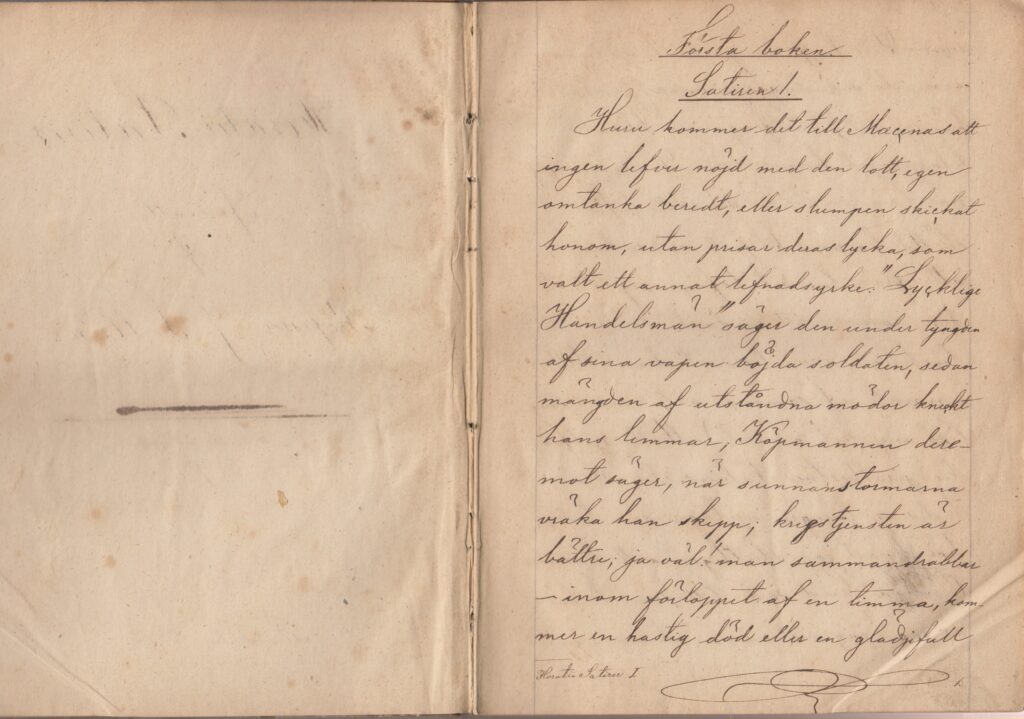 Första boken.
Satiren 1.
Huru kommer det till Mæcenas att
ingen lefver nöjd med den lott, egen
omtanka beredt, eller slumpen skickat
honom, utan prisar deras lycka, som
valt ett annat lefnadsyrke. "Lycklige
Handelsmän" säger den under tyngden
af sina vapen böjda soldaten, sedan
mängden af utståndna mödor knäckt
hans lemmar, Köpmannen dere-
mot säger, när sunnanstormarna
vräka han skepp; krigstjensten är
bättre; ja väl! man sammandrabbar
– inom förloppet af en timma, kom-
mer en hastig död eller en glädjefull
Horatii Satirer I
1.